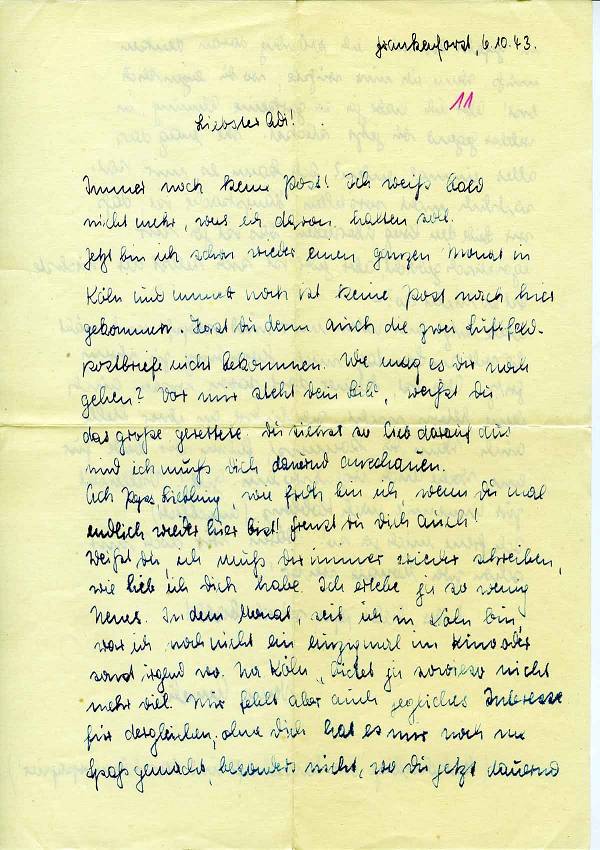 Frankenforst, 6.10.43.
11
Liebster Adi!
Immer noch keine Post! Ich weiß bald
nicht mehr, was ich davon halten soll.
Jetzt bin ich schon wieder einen ganzen Monat in
Köln und immer noch ist keine Post nach hier
gekommen. Hast Du denn auch die zwei Luftfeld-
postbriefe nicht bekommen. Wie mag es Dir noch
gehen? Vor mir steht dein Bild, weißt Du
das große gerettete. Du siehst so lieb darauf aus
und ich muß Dich dauernd anschauen.
Ach Liebling, wie froh bin ich, wenn Du mal
endlich wieder hier bist! freust Du Dich auch!
Weißt Du, ich muß Dir immer wieder schreiben,
wie lieb ich Dich habe. Ich erlebe ja so wenig
Neues. In dem Monat, seit ich in Köln bin,
war ich noch nicht ein einzigmal im Kino oder
sonst irgend wo. Na Köln ja sowieso nicht
mehr viel. Mir fehlt aber auch jegliches Interesse
für dergleichen, ohne Dich hat es mir noch nie
Spaß gemacht, besonders nicht, wo Du jetzt dauernd